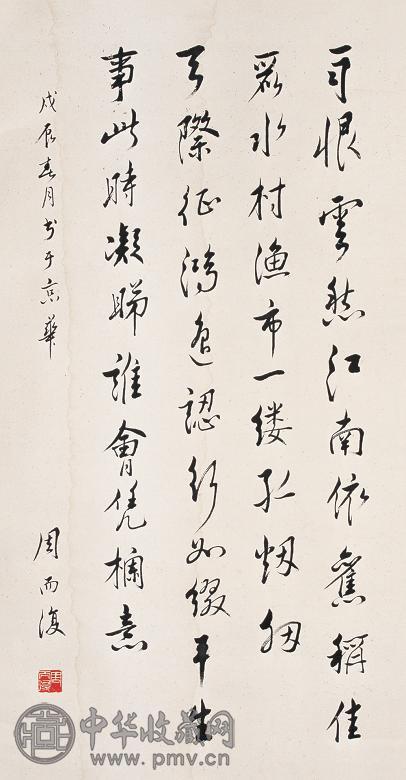 雨恨雲愁江南依舊稱佳
麗水村漁市一缕孤烟細
天際征鴻遥認行如缀平生
事此時凝睇誰會凭欄意
戊辰春月书于京華
周而復
中华收藏网
www.pmv.cn